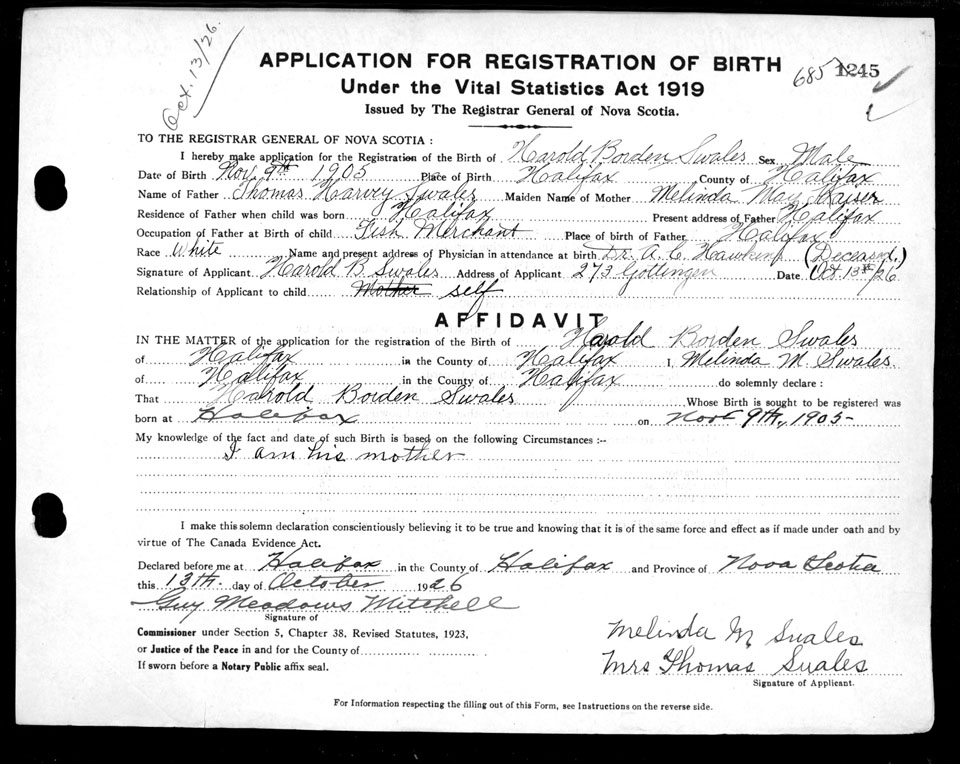 Oct. 13/26.
APPLICATION FOR REGISTRATION OF BIRTH
685 1245
Under the Vital Statistics Act 1919
Issued by The Registrar General of Nova Scotia.
TO THE REGISTRAR GENERAL OF NOVA SCOTIA :
I hereby make application for the Registration of the Birth of Harold Borden Swales Sex Male
Date of Birth Nov. 9th 1905 Place of Birth Halifax County of Halifax
Name of Father Thomas Harvey Swales Maiden Name of Mother Melinda May
Residence of Father when child was born Halifax Present address of Father Halifax
Occupation of Father at Birth of child Fish Merchant Place of birth of Father Halifax
Race White Name and present address of Physician in attendance at birth Dr. A. C. Hawkins (Deceased.)
Signature of Applicant Harold B. Swales Address of Applicant 273 Gottingen Date Oct. 13th/26
Relationship of Applicant to child Mother self
AFFIDAVIT
IN THE MATTER of the application for the registration of the Birth of Harold Borden Swales
of Halifax in the County of Halifax I, Melinda M. Swales
of Halifax in the County of Halifax do solemnly declare :
That Harold Borden Swales Whose Birth is sought to be registered was
born at Halifax on Nov 9th, 1905-
My knowledge of the fact and date of such Birth is based on the following Circumstances :--
I am his mother
I make this solemn declaration conscientiously believing it to be true and knowing that it is of the same force and effect as if made under oath and by
virtue of The Canada Evidence Act.
Declared before me at Halifax in the County of Halifax and Province of Nova Scotia
this 13th. day of October 1926
Guy Meadows Mitchell
Signature of
Commissioner under Section 5, Chapter 38, Revised Statutes, 1923,
or Justice of the Peace in and for the County of
If sworn before a Notary Public affix seal.
Melinda M Swales
Mrs Thomas Swales
Signature of Applicant.
For Information respecting the filling out of this Form, see Instructions on the reverse side.